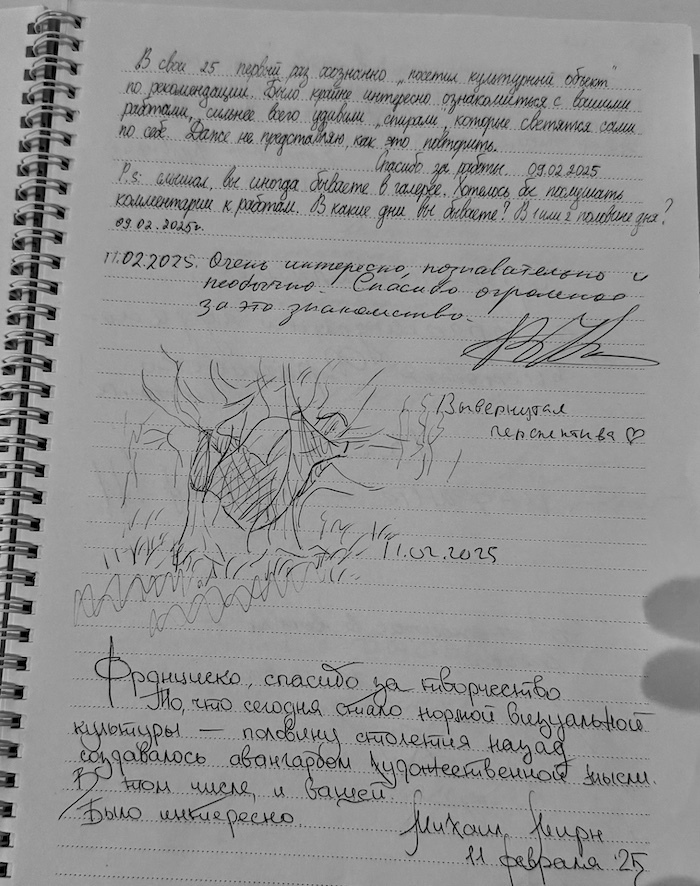 В свои 25 первый раз осознанно „посетил культурный объект"
по рекомендации. Было крайне интересно ознакомиться с вашими
работами, сильнее всего удивили „спирали", которые светятся сами
по себе. Даже не представляю, как это повторить.
Спасибо за работы. 09.02.2025
P.s: слышал, вы иногда бываете в галерее. Хотелось бы послушать
комментарии к работам. В какие дни вы бываете? В 1 или 2 половине дня?
09.02.2025г.
11.02.2025. Очень интересно, познавательно и
необычно. Спасибо огромное
за это знакомство.
Вывернутая
перспектива ♡
11.02.2025
Франциско, спасибо за творчество
То, что сегодня стало нормой визуальной
культуры — половину столетия назад
создавалось авангардом художественной мысли.
В том числе, и вашей.
Было интересно.
Михаил
11 февраля '25